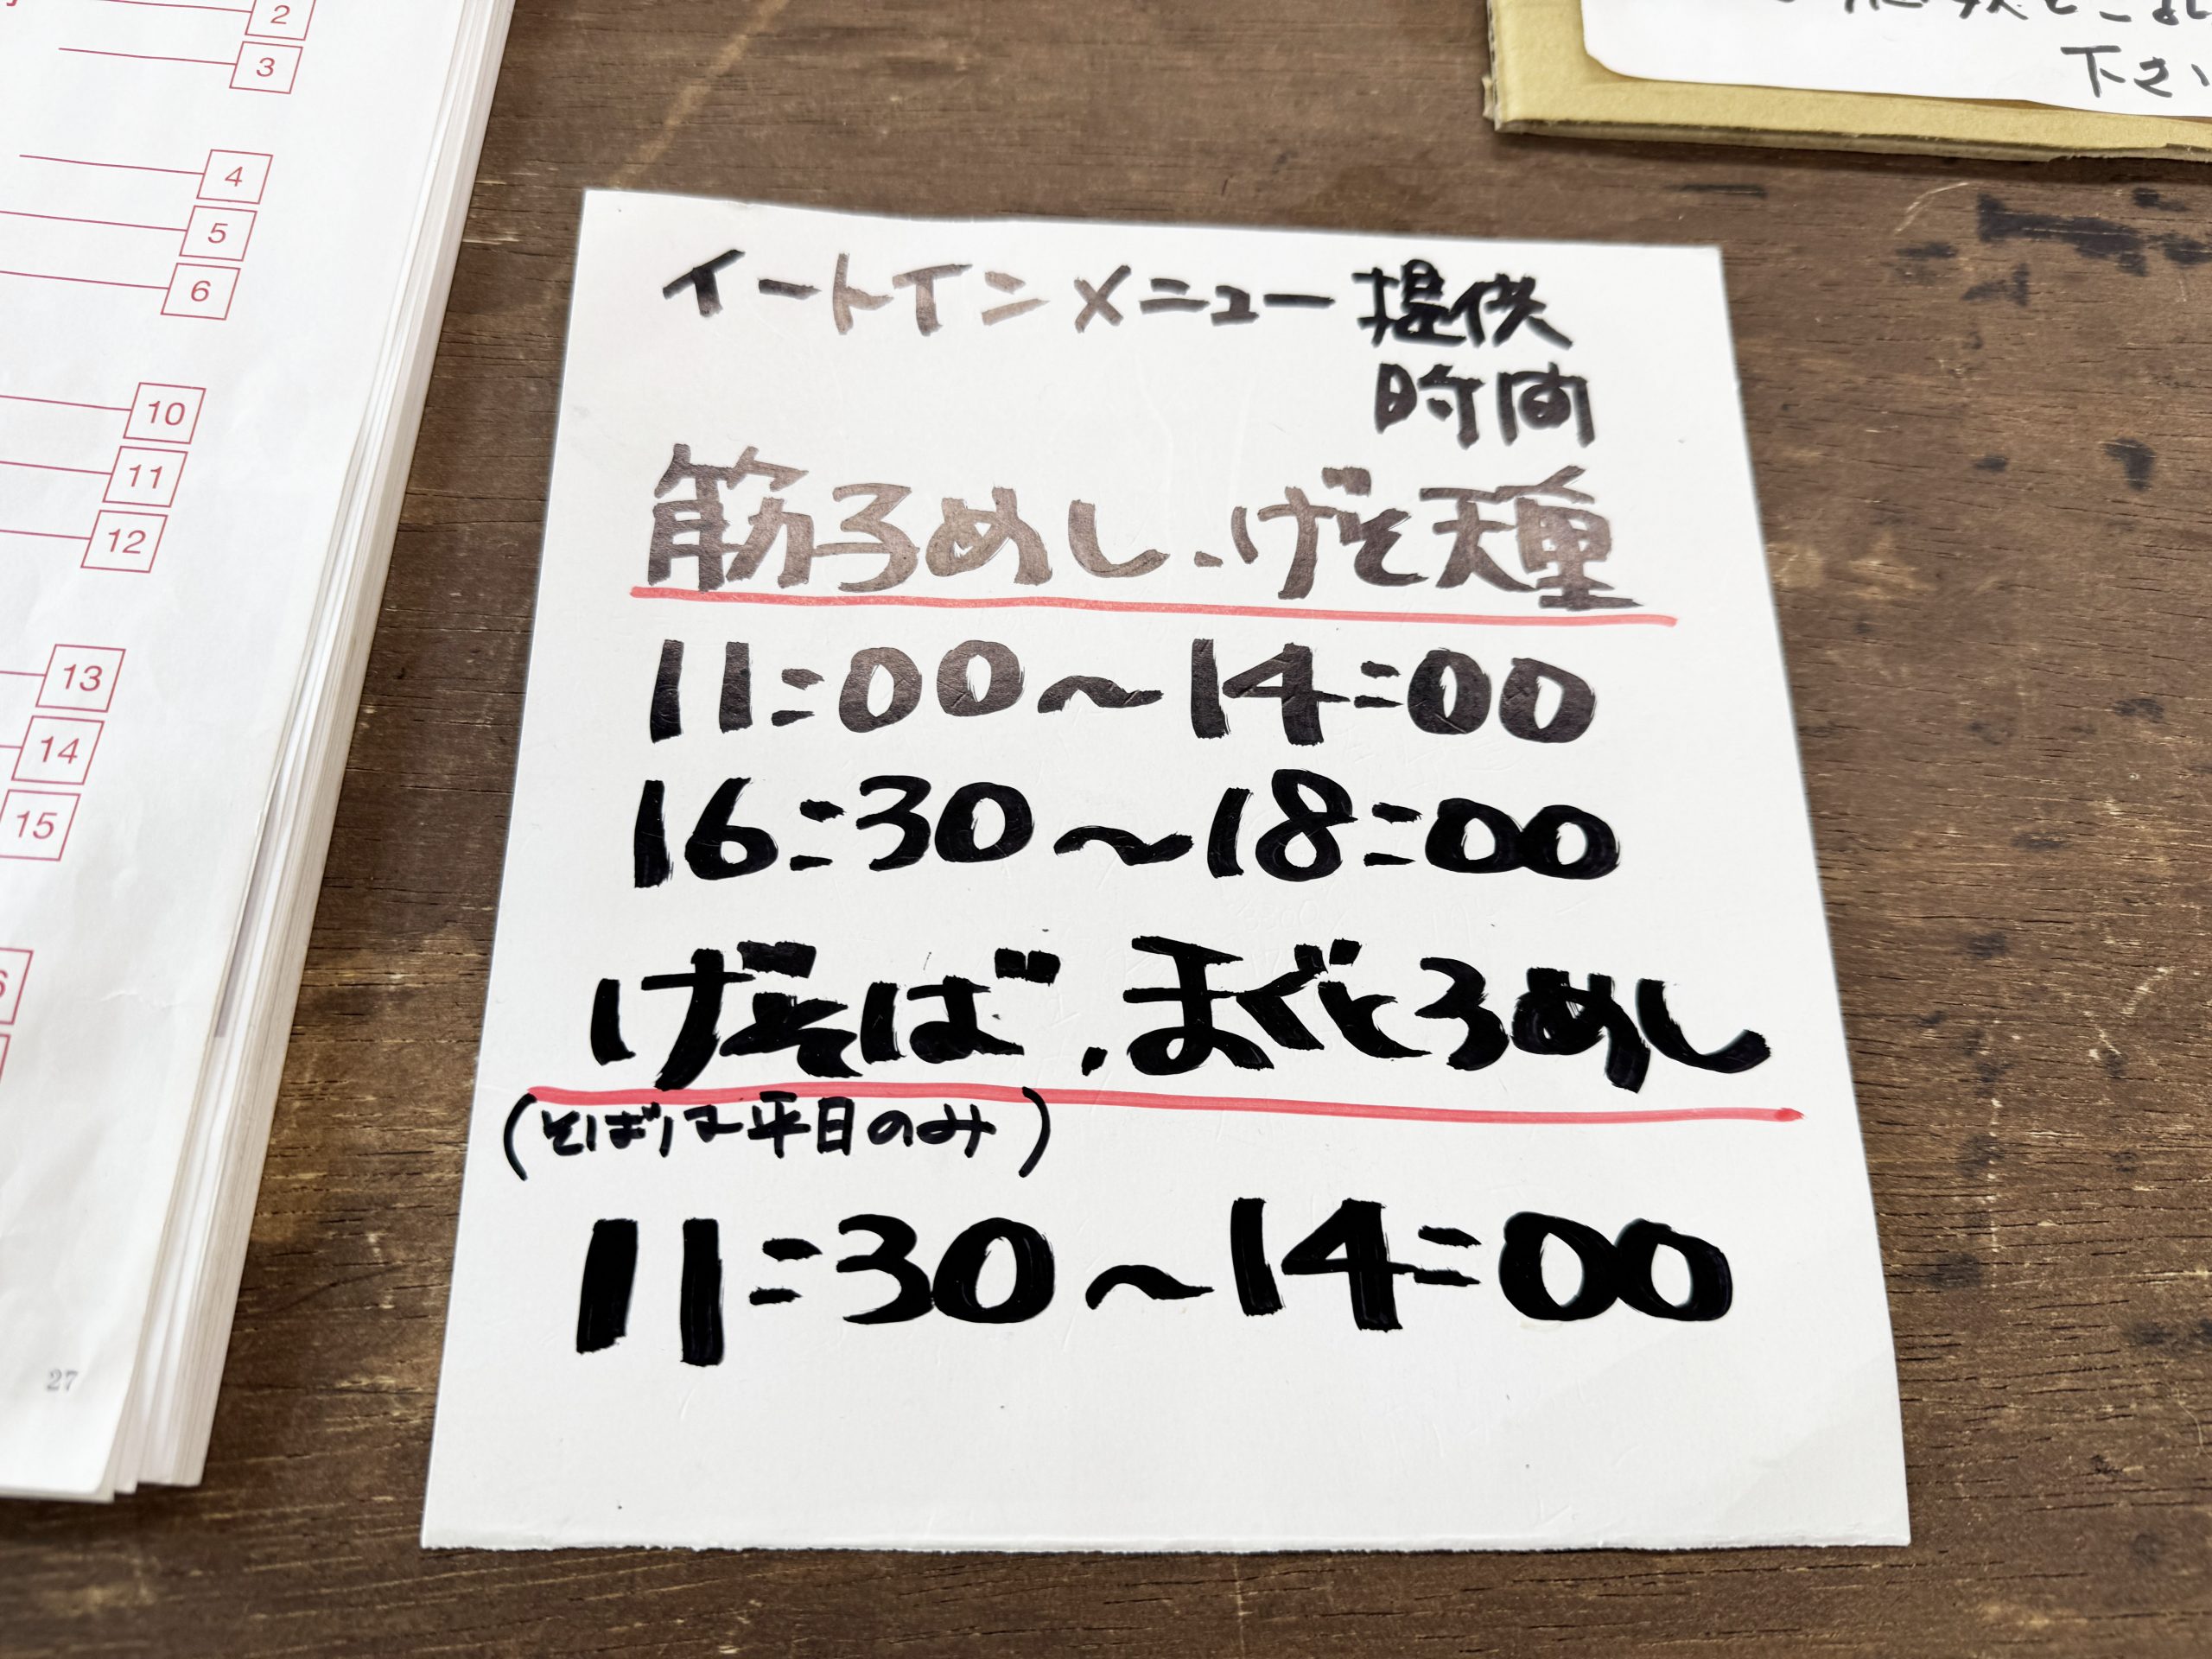 イートインメニュー提供
時間
筋子めし、げそ天重
11:00〜14:00
16:30〜18:00
げそば、まぐとろめし
(そばは平日のみ)
11:30〜14:00
2
3
4
5
6
10
11
12
13
14
15
27
下さい